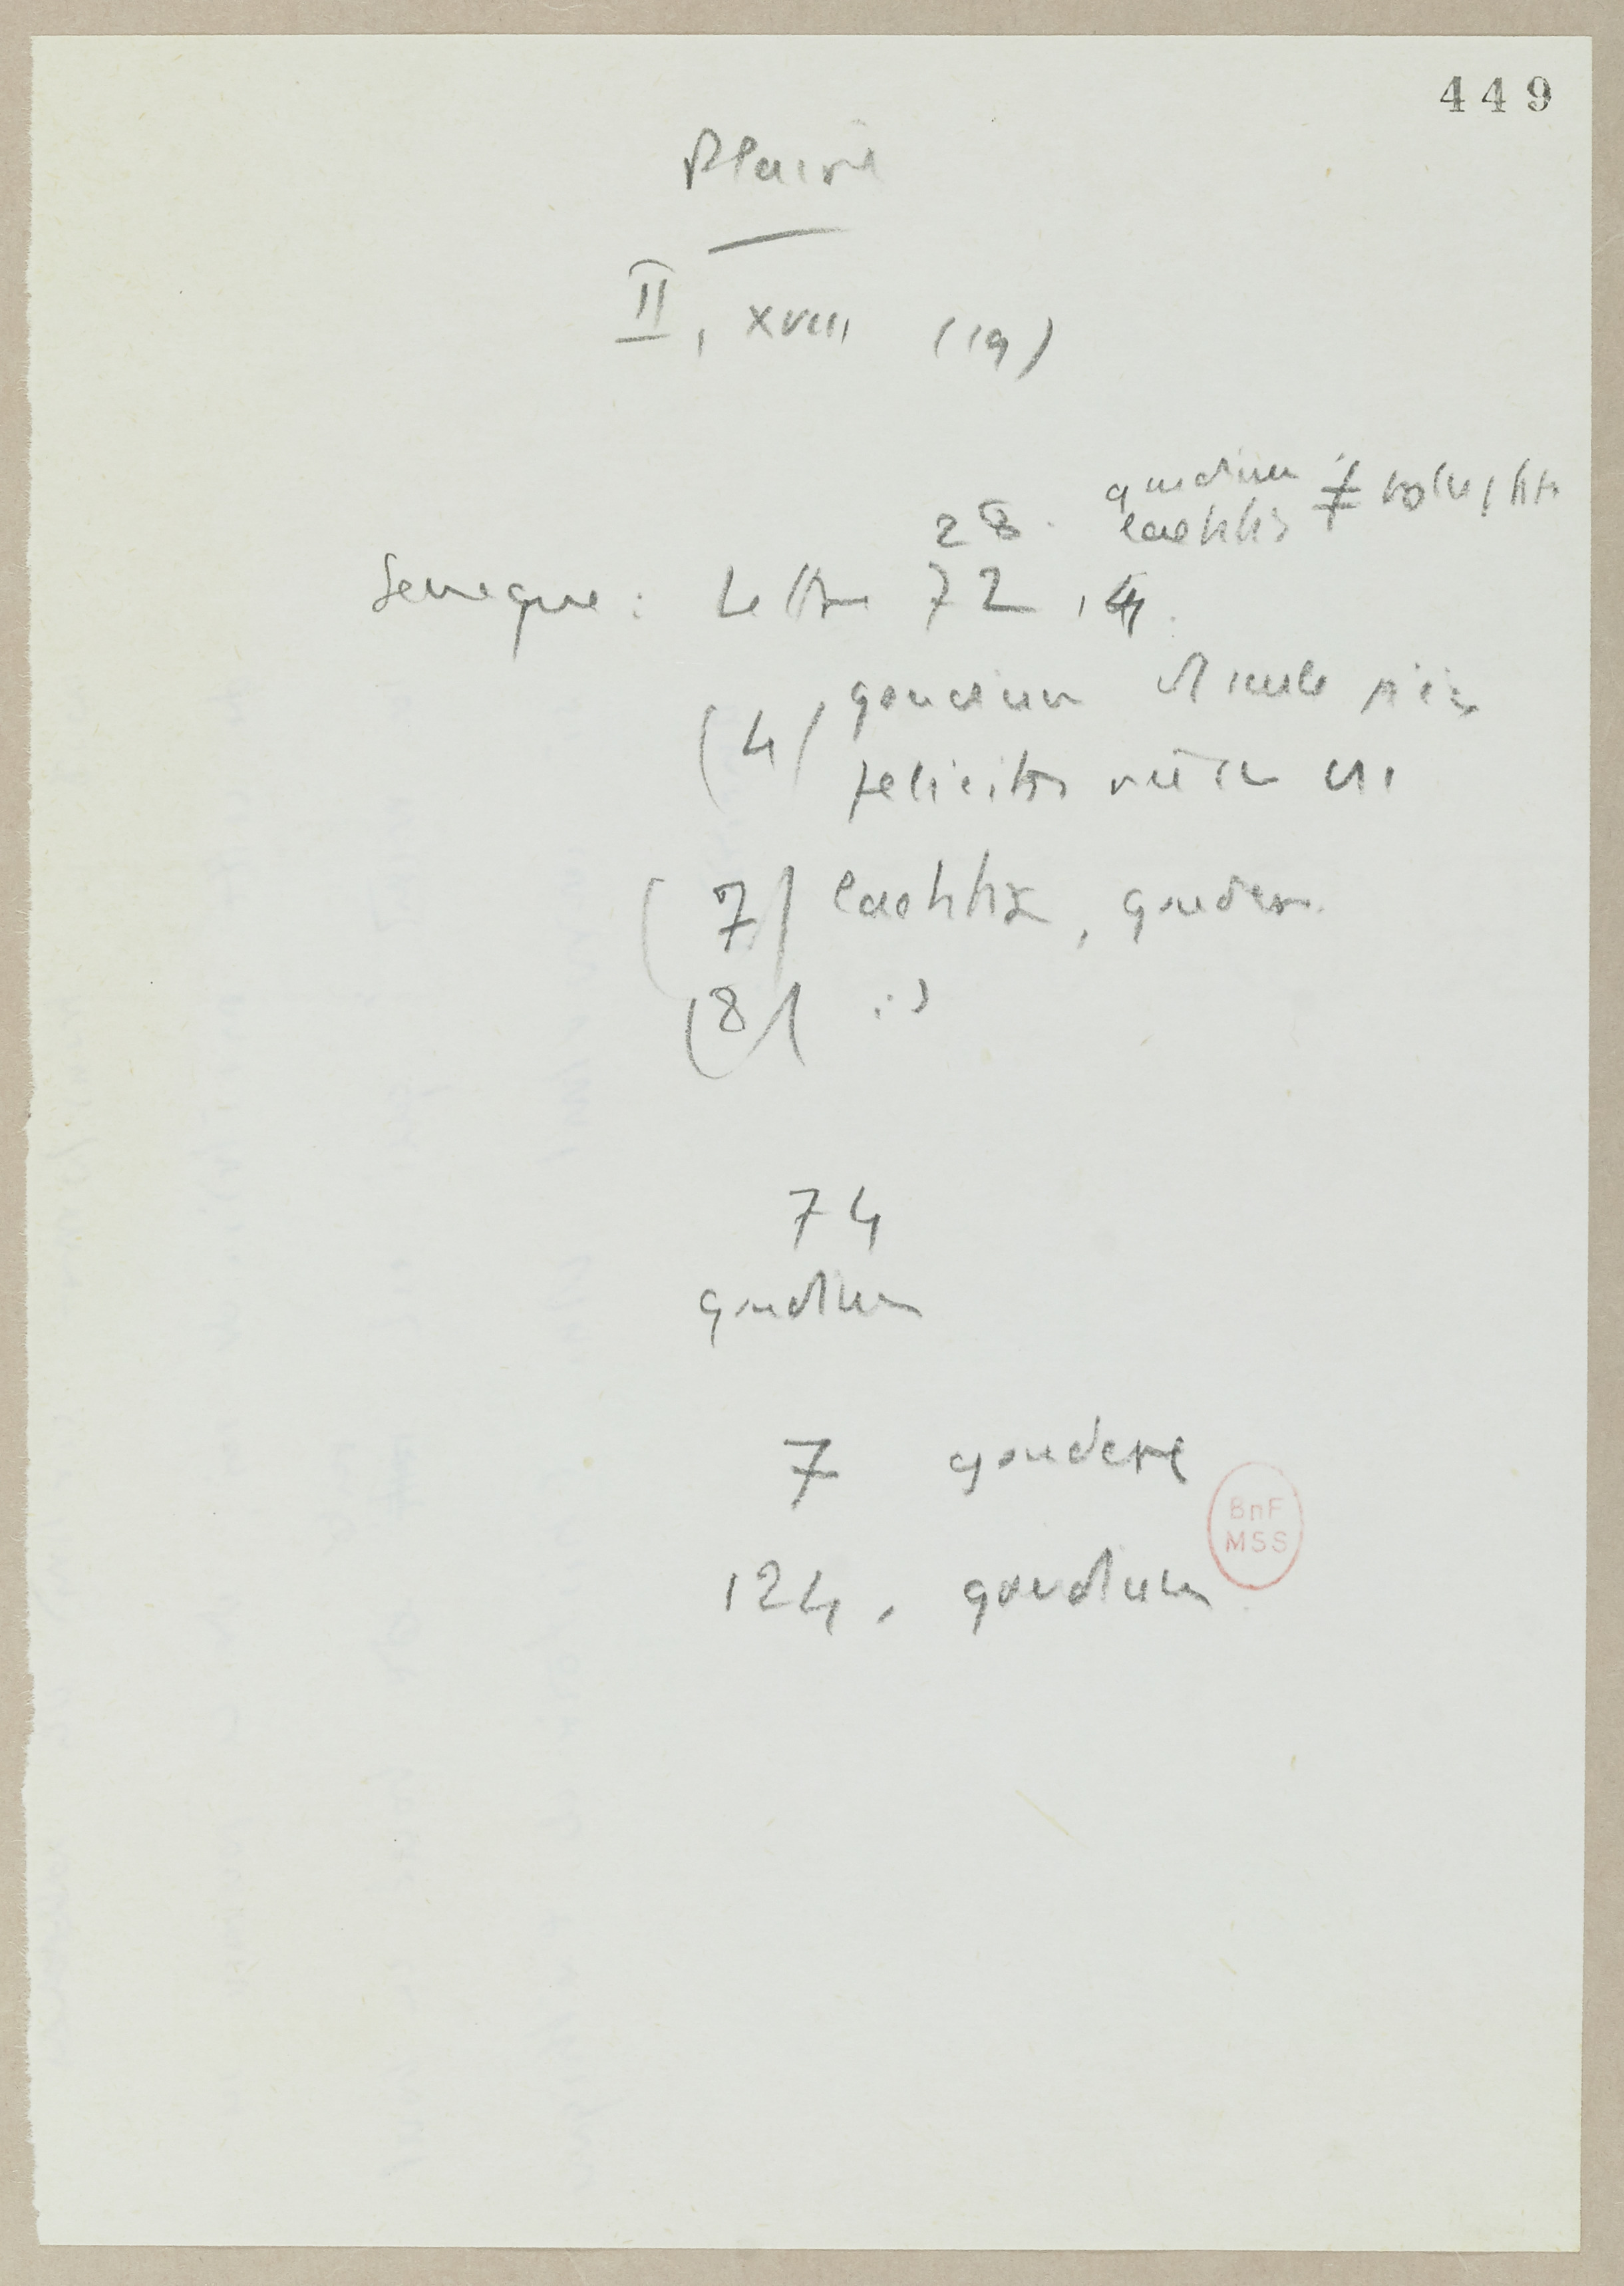 449
Plaire
II, XVIII (19)
28. gaudium
laetitia ≠ voluptas
Seneque : Lettre 72, 4.
(4) gaudium
felicitas
(7) laetitia, gaudere
(8) id
74
gaudium
7 gaudere
BnF
MSS
124, gaudium